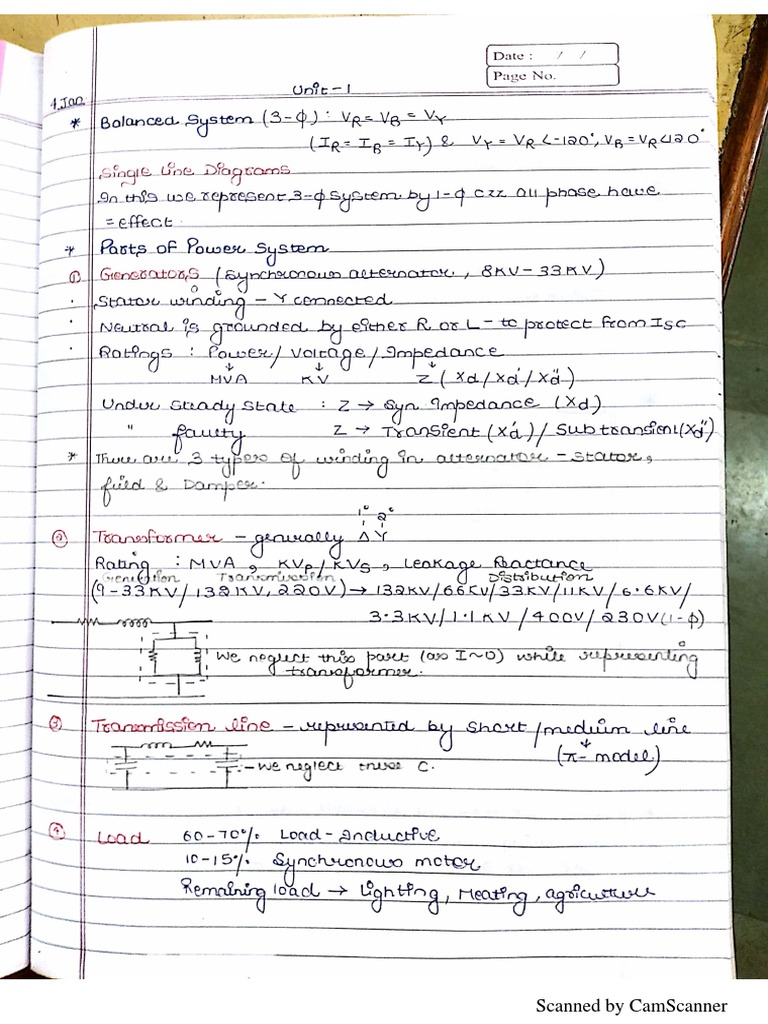 Date : / /
Page No.
Unit-1
4 Jan
* Balanced System (3-ϕ) : VR = VB = VY
(IR = IB = IY) & VY = VR∠-120°, VB = VR∠120°
Single Line Diagrams
In this we represent 3-ϕ system by 1-ϕ czz all phase have
= effect.
* Parts of Power System
① Generators (Synchronous alternator, 8KV-33KV)
· Stator winding - Y connected
· Neutral is grounded by either R or L - to protect from Isc
· Ratings : Power / Voltage / Impedance
↓ ↓ ↓
MVA KV Z (Xd/Xd'/Xd")
Under Steady State : Z → Syn Impedance (Xd)
" faulty Z → Transient (Xd') / Subtransient (Xd")
* There are 3 types of winding in alternator - Stator,
field & Damper.
1° 2°
② Transformer - generally Δ Y
Rating : MVA, KVP/KVS, Leakage Reactance
Generation Transmission Distribution
(9-33KV/132KV, 220V) → 132KV/66KV/33KV/11KV/6.6KV/
3.3KV/1.1KV/400V/230V(1-ϕ)
We neglect this part (as I~0) while representing
transformer.
③ Transmission line - represented by short/medium line
↓
(π-model)
- We neglect these C.
④ Load 60-70% Load-Inductive
10-15% Synchronous motor
Remaining load → Lighting, Heating, agriculture
Scanned by CamScanner